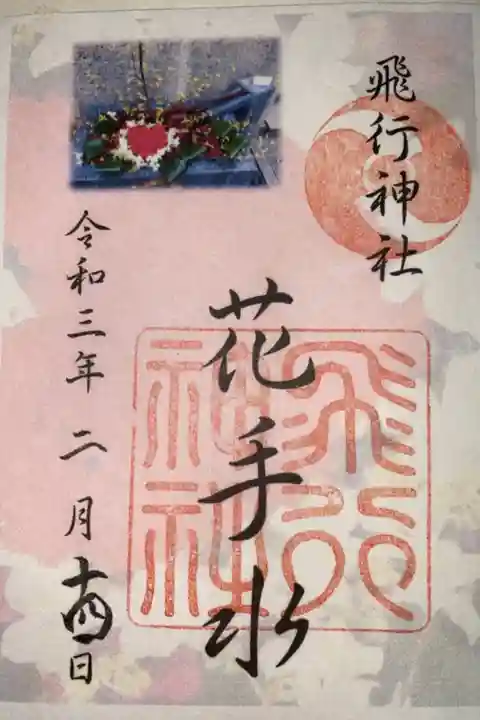 飛行神社
花手水
飛行
神社
令和三年 二月十四日